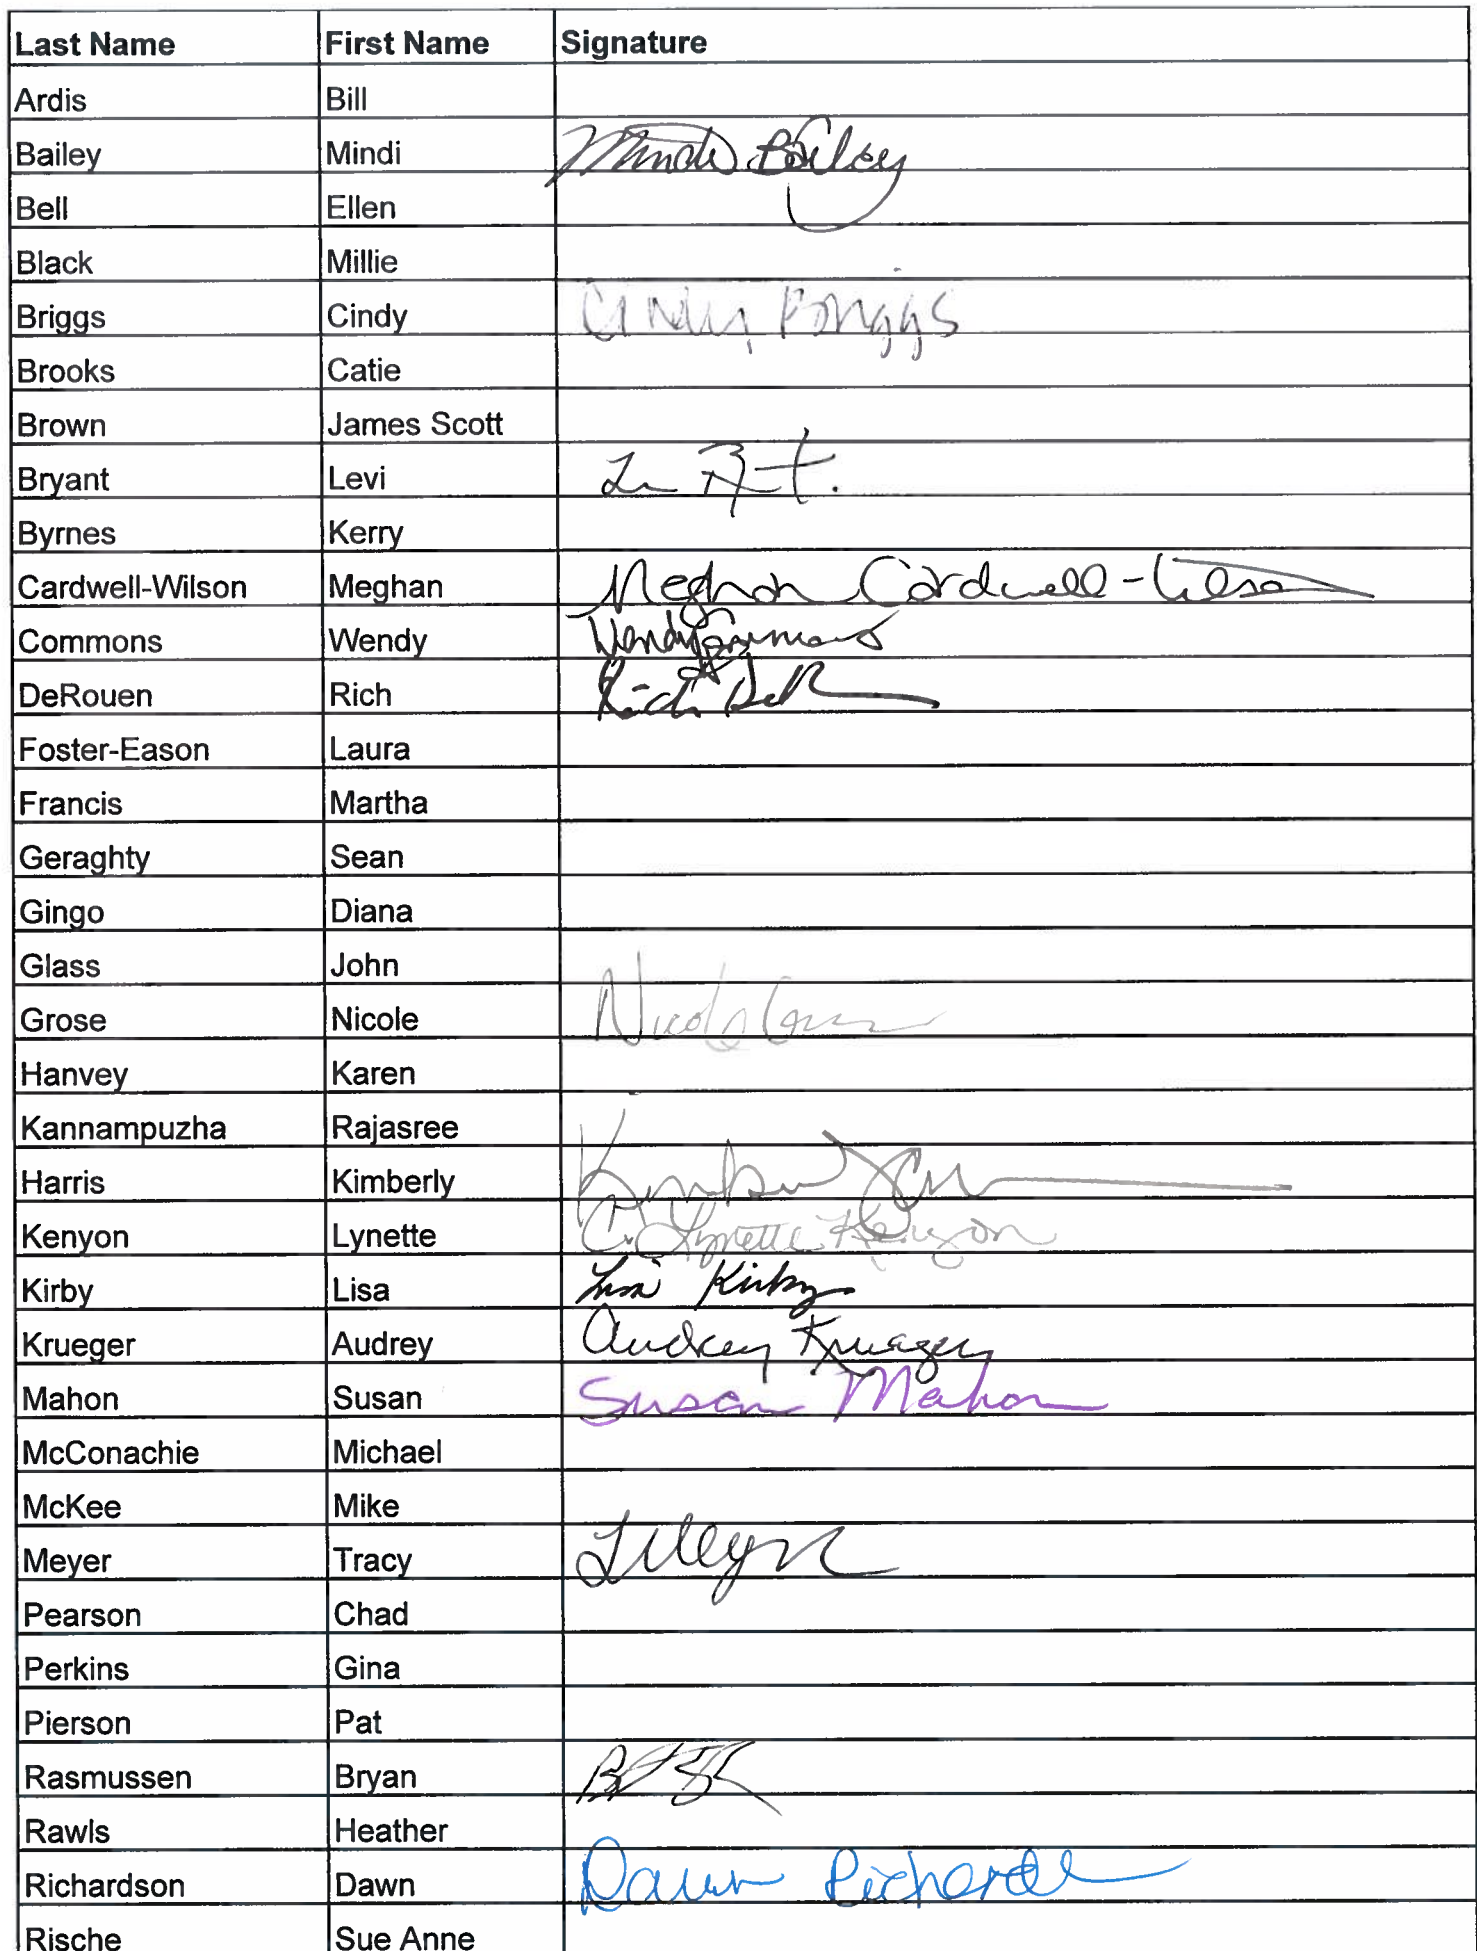 Last Name First Name Signature
Ardis Bill
Bailey Mindi Mindi Bailey
Bell Ellen
Black Millie
Briggs Cindy Cindy Briggs
Brooks Catie
Brown James Scott
Bryant Levi
Byrnes Kerry
Cardwell-Wilson Meghan Meghan Cardwell-Wilson
Commons Wendy Wendy Commons
DeRouen Rich Rich DeR
Foster-Eason Laura
Francis Martha
Geraghty Sean
Gingo Diana
Glass John
Grose Nicole Nicole
Hanvey Karen
Kannampuzha Rajasree
Harris Kimberly
Kenyon Lynette C. Lynette Kenyon
Kirby Lisa Lisa Kirby
Krueger Audrey Audrey Krueger
Mahon Susan Susan Mahon
McConachie Michael
McKee Mike
Meyer Tracy
Pearson Chad
Perkins Gina
Pierson Pat
Rasmussen Bryan
Rawls Heather
Richardson Dawn Dawn Richards
Rische Sue Anne